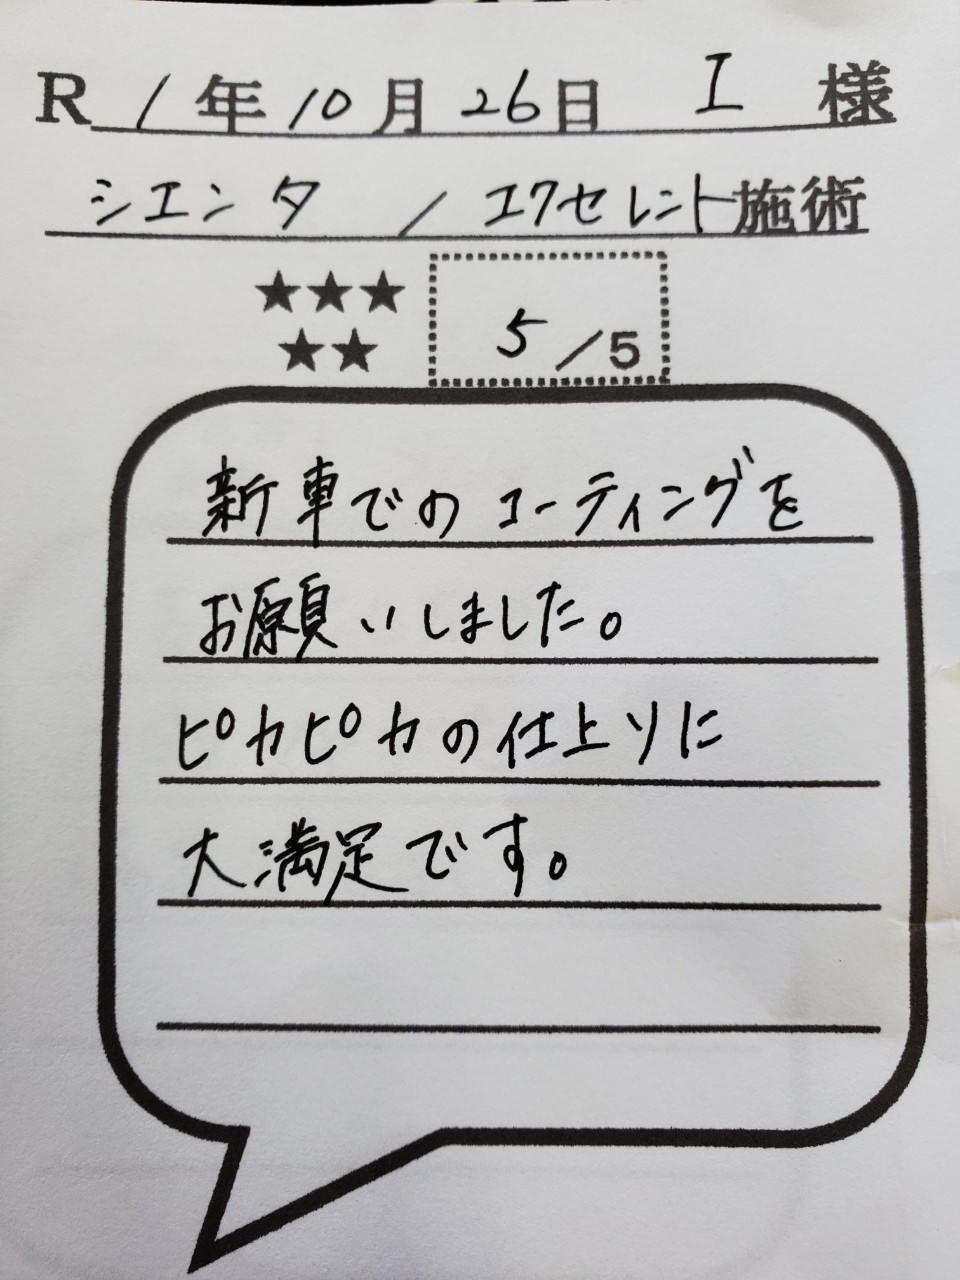 R 1年10月26日 I 様
シエンタ / エクセレント施術
★★★
★★
5/5
新車でのコーティングを
お願いしました。
ピカピカの仕上りに
大満足です。